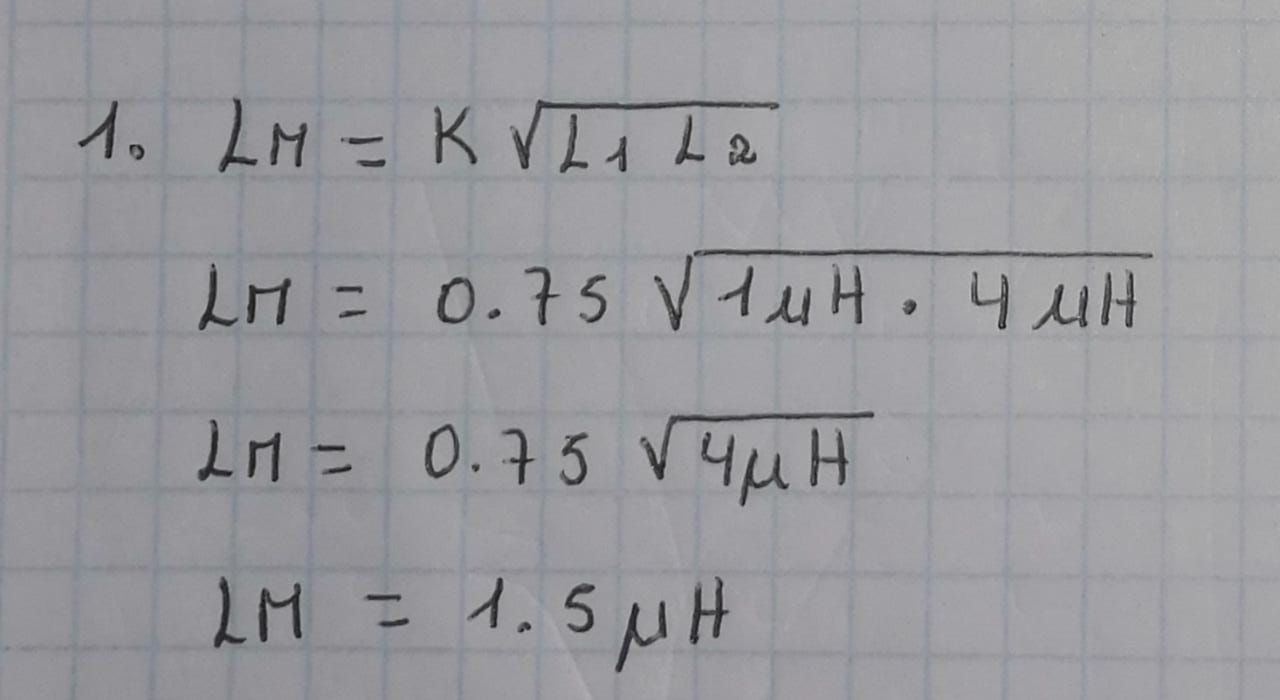 1. LM = K √L1 L2
LM = 0.75 √1μH . 4 μH
LM = 0.75 √4μH
LM = 1.5 μH